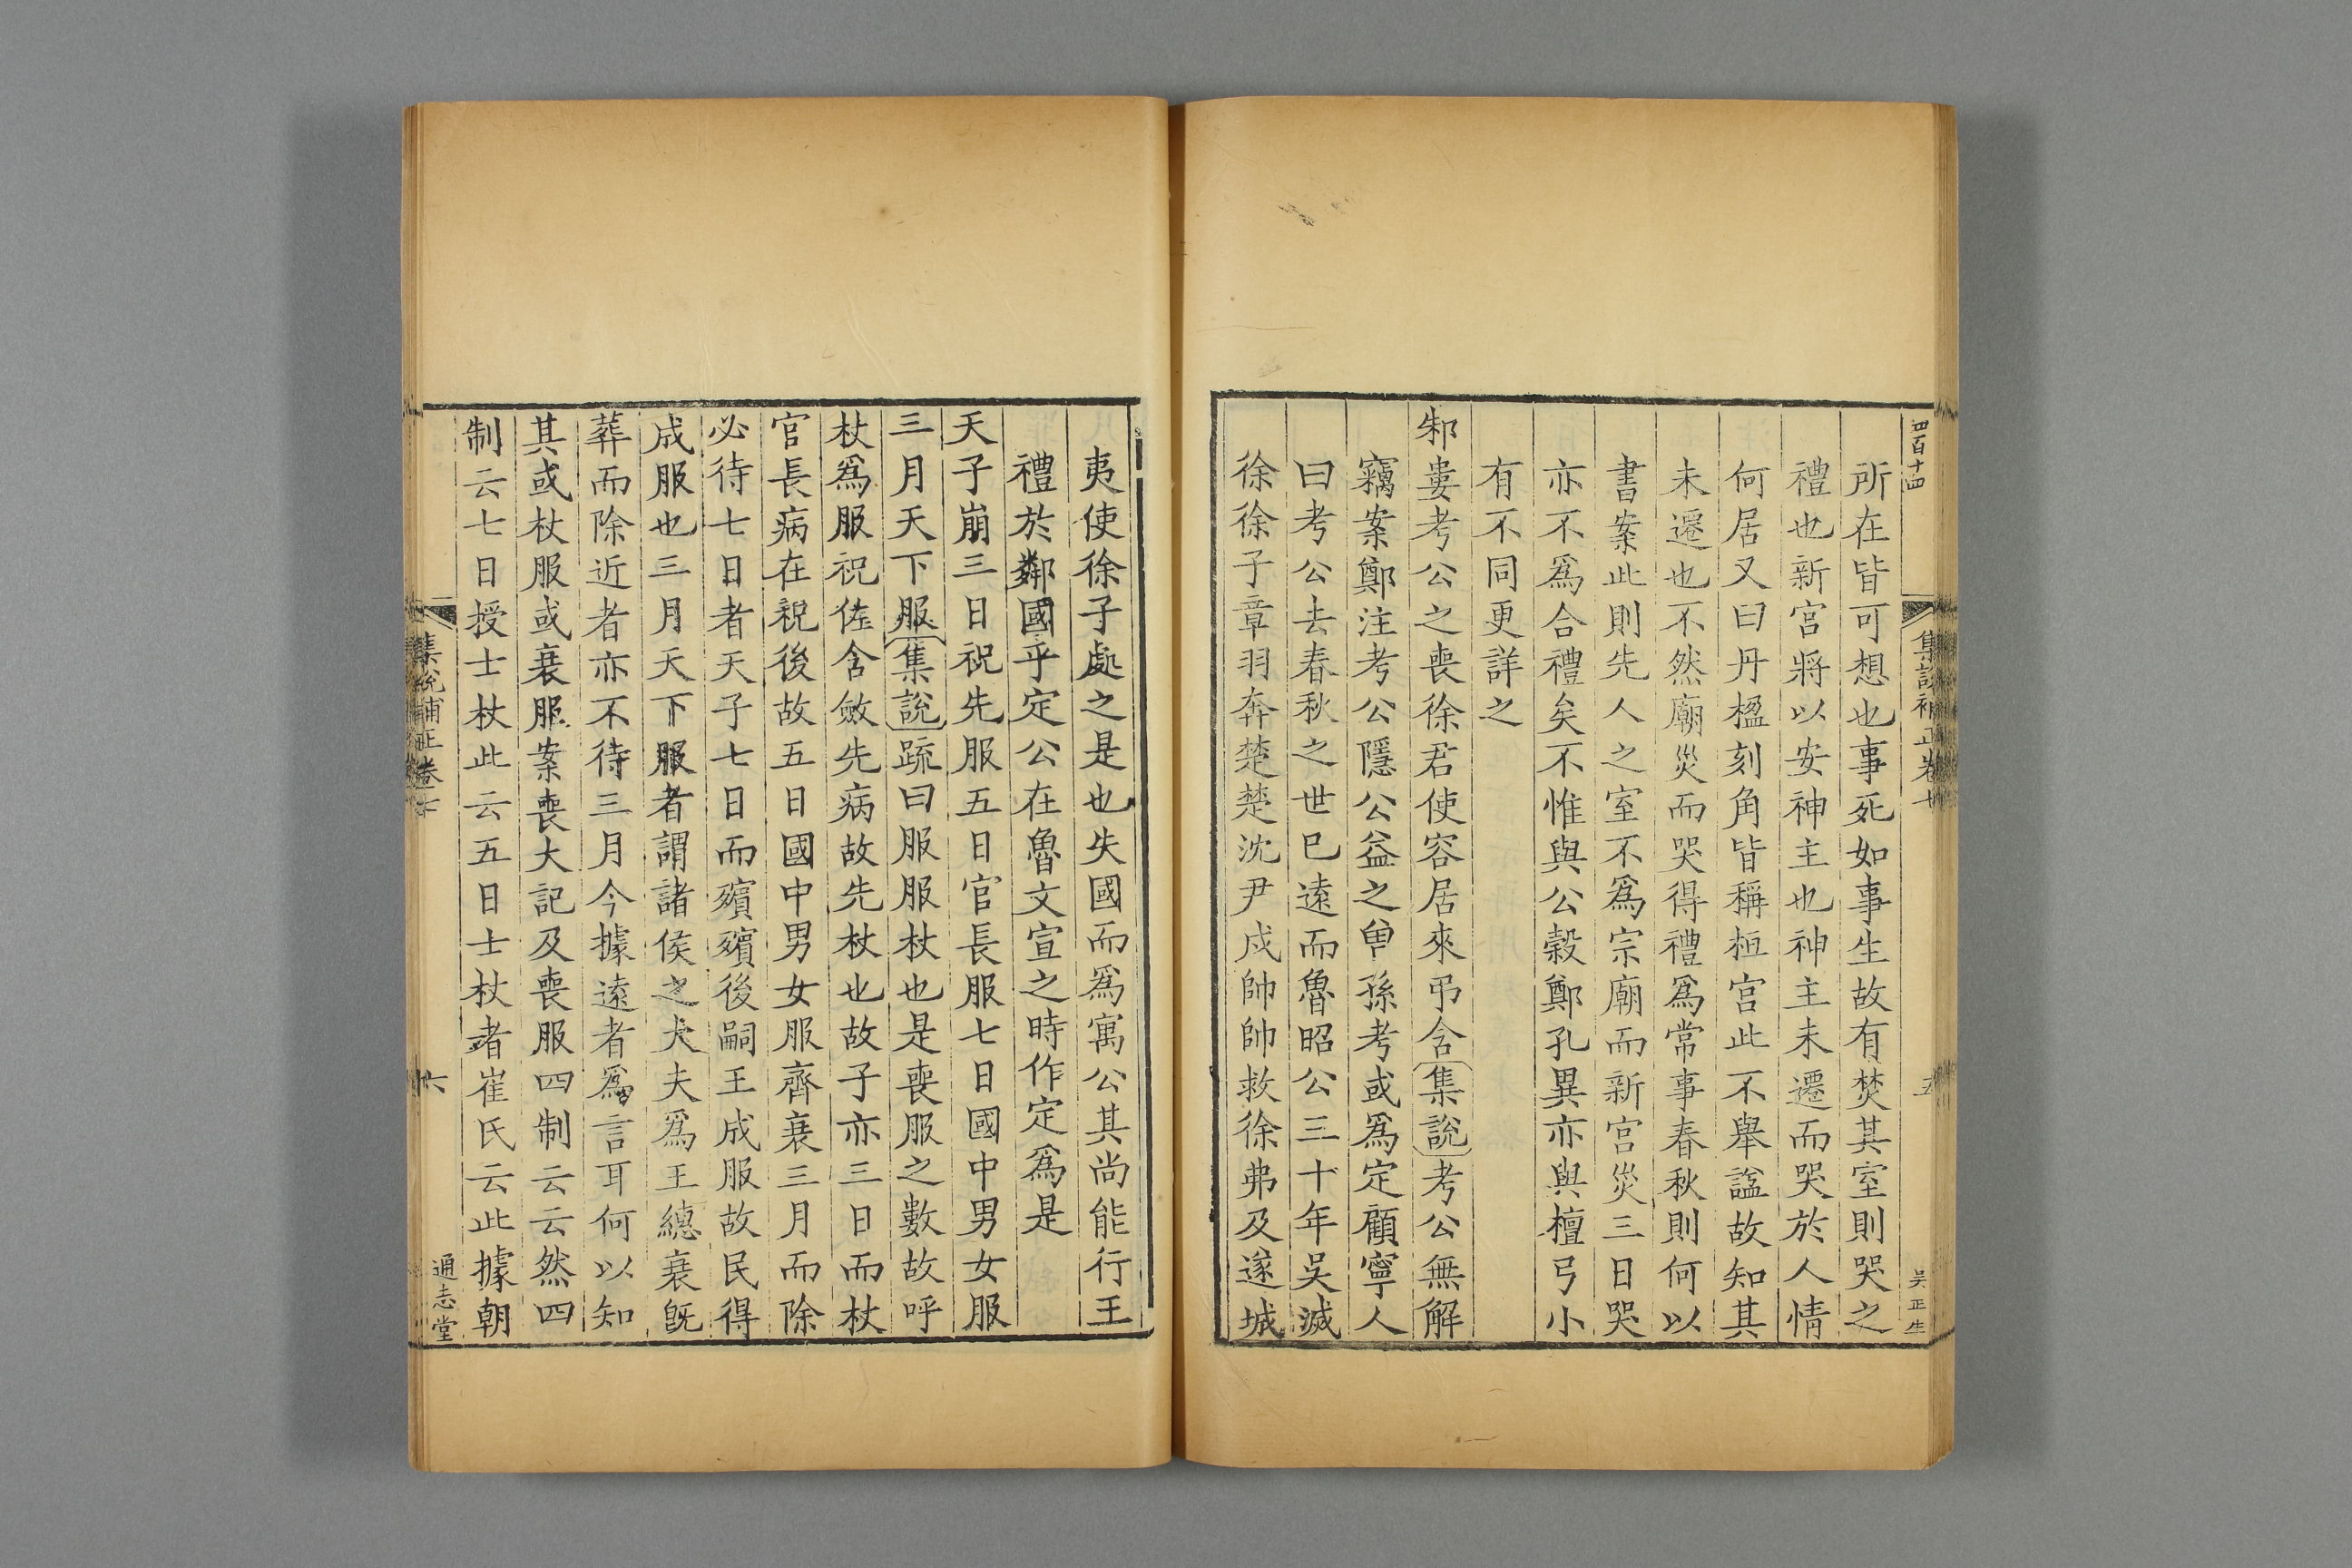 四百十四
集說補正卷七
五
吳正生
所在皆可想也事死如事生故有焚其室則哭之
禮也新宮將以安神主也神主未遷而哭於人情
何居又曰丹楹刻角皆稱桓宮此不舉諡故知其
未遷也不然廟災而哭得禮爲常事春秋則何以
書案此則先人之室不爲宗廟而新宮災三日哭
亦不爲合禮矣不惟與公穀鄭孔異亦與檀弓小
有不同更詳之
邾婁考公之喪徐君使容居來弔含集說考公無解
竊案鄭注考公隱公益之曾孫考或爲定顧寧人
曰考公去春秋之世已遠而魯昭公三十年吳滅
徐徐子章羽奔楚楚沈尹戍帥帥救徐弗及遂城
夷使徐子處之是也失國而爲寓公其尚能行王
禮於鄰國乎定公在魯文宣之時作定爲是
天子崩三日祝先服五日官長服七日國中男女服
三月天下服集說疏曰服服杖也是喪服之數故呼
杖爲服祝佐含斂先病故先杖也故子亦三日而杖
官長病在祝後故五日國中男女服齊衰三月而除
必待七日者天子七日而殯殯後嗣王成服故民得
成服也三月天下服者謂諸侯之大夫爲王繐衰旣
葬而除近者亦不待三月今據遠者爲言耳何以知
其或杖服或衰服案喪大記及喪服四制云云然四
制云七日授士杖此云五日士杖者崔氏云此據朝
集說補正卷七
六
通志堂